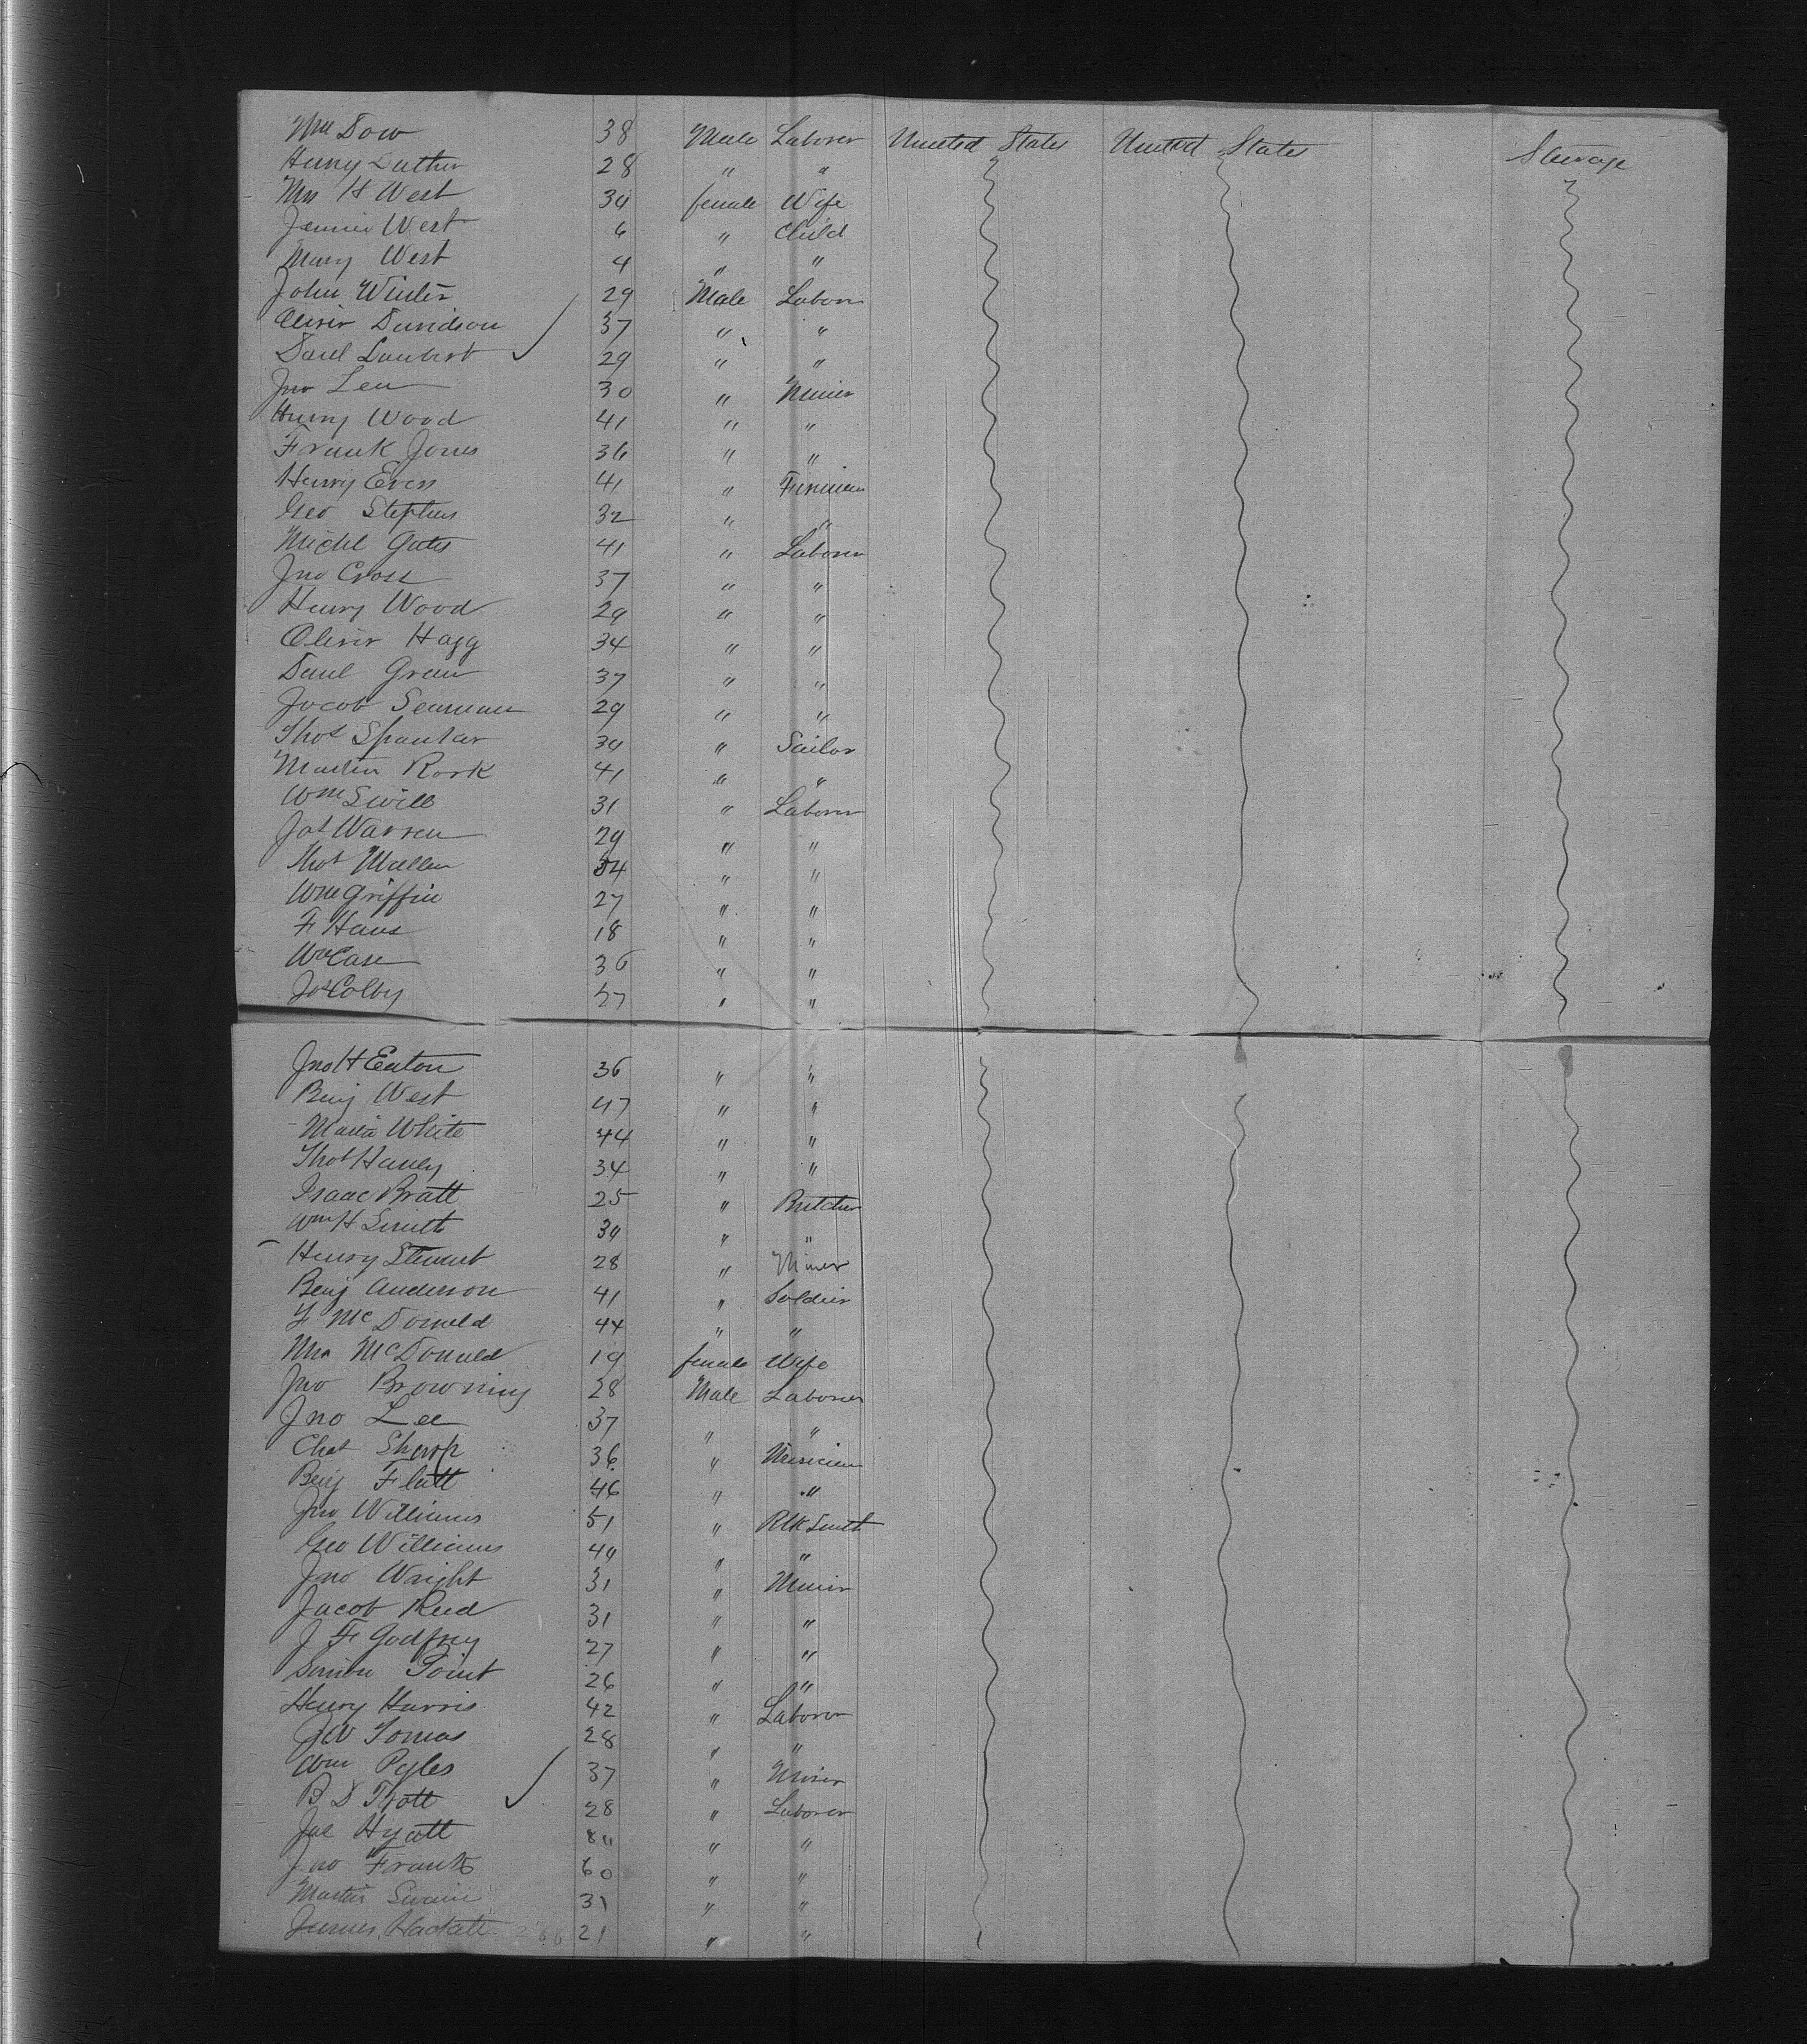 Wm Dow 38 Male Laborer United States United States Steerage
Henry Luther 28 " "
Mrs H West 34 female Wife
Jennie West 6 " Child
Mary West 4 " "
John Winter 29 Male Laborer
Oliver Davidson 37 " "
Danl Lambert 29 " "
Jno Lee 30 " Miner
Henry Wood 41 " "
Frank Jones 36 " "
Henry Evers 41 "
Geo Stephens 32 " "
Michl Gates 41 " Laborer
Jno Cross 37 " "
Henry Wood 29 " "
Oliver Hagg 34 " "
Danl Green 37 " "
Jacob Seaman 29 " "
Thos Spanker 34 " Sailor
Martin Rork 41 " "
Wm Swill 31 " Laborer
Jas Warren 29 " "
Thos Mullen 34 " "
Wm Griffin 27 " "
F Haus 18 " "
Wm Case 36 " "
Jos Colby 37 " "
Jno H Eaton 36 " "
Benj West 47 " "
Maria White 44 " "
Thos Hanley 34 " "
Isaac Bratt 25 " Butcher
Wm H Smith 34 " "
Henry Stewart 28 " Miner
Benj Anderson 41 " Soldier
F McDonald 44 " "
Mrs McDonald 19 female Wife
Jno Browning 28 Male Laborer
Jno Lee 37 " "
Chas Sharp 36 " Musician
Benj Flatt 46 " "
Jno Williams 51 " Blk Smith
Geo Williams 44 " "
Jno Wright 31 " Miner
Jacob Reed 31 " "
J F Godfrey 27 " "
Simon Point 26 " "
Henry Harris 42 " Laborer
J W Tomas 28 " "
Wm Pyles 37 " Miner
B D Tyott 28 " Laborer
Jas Hyatt " "
Jno Frank 60 " "
Martin Swain 31 " "
James Hackett 266 21 " "